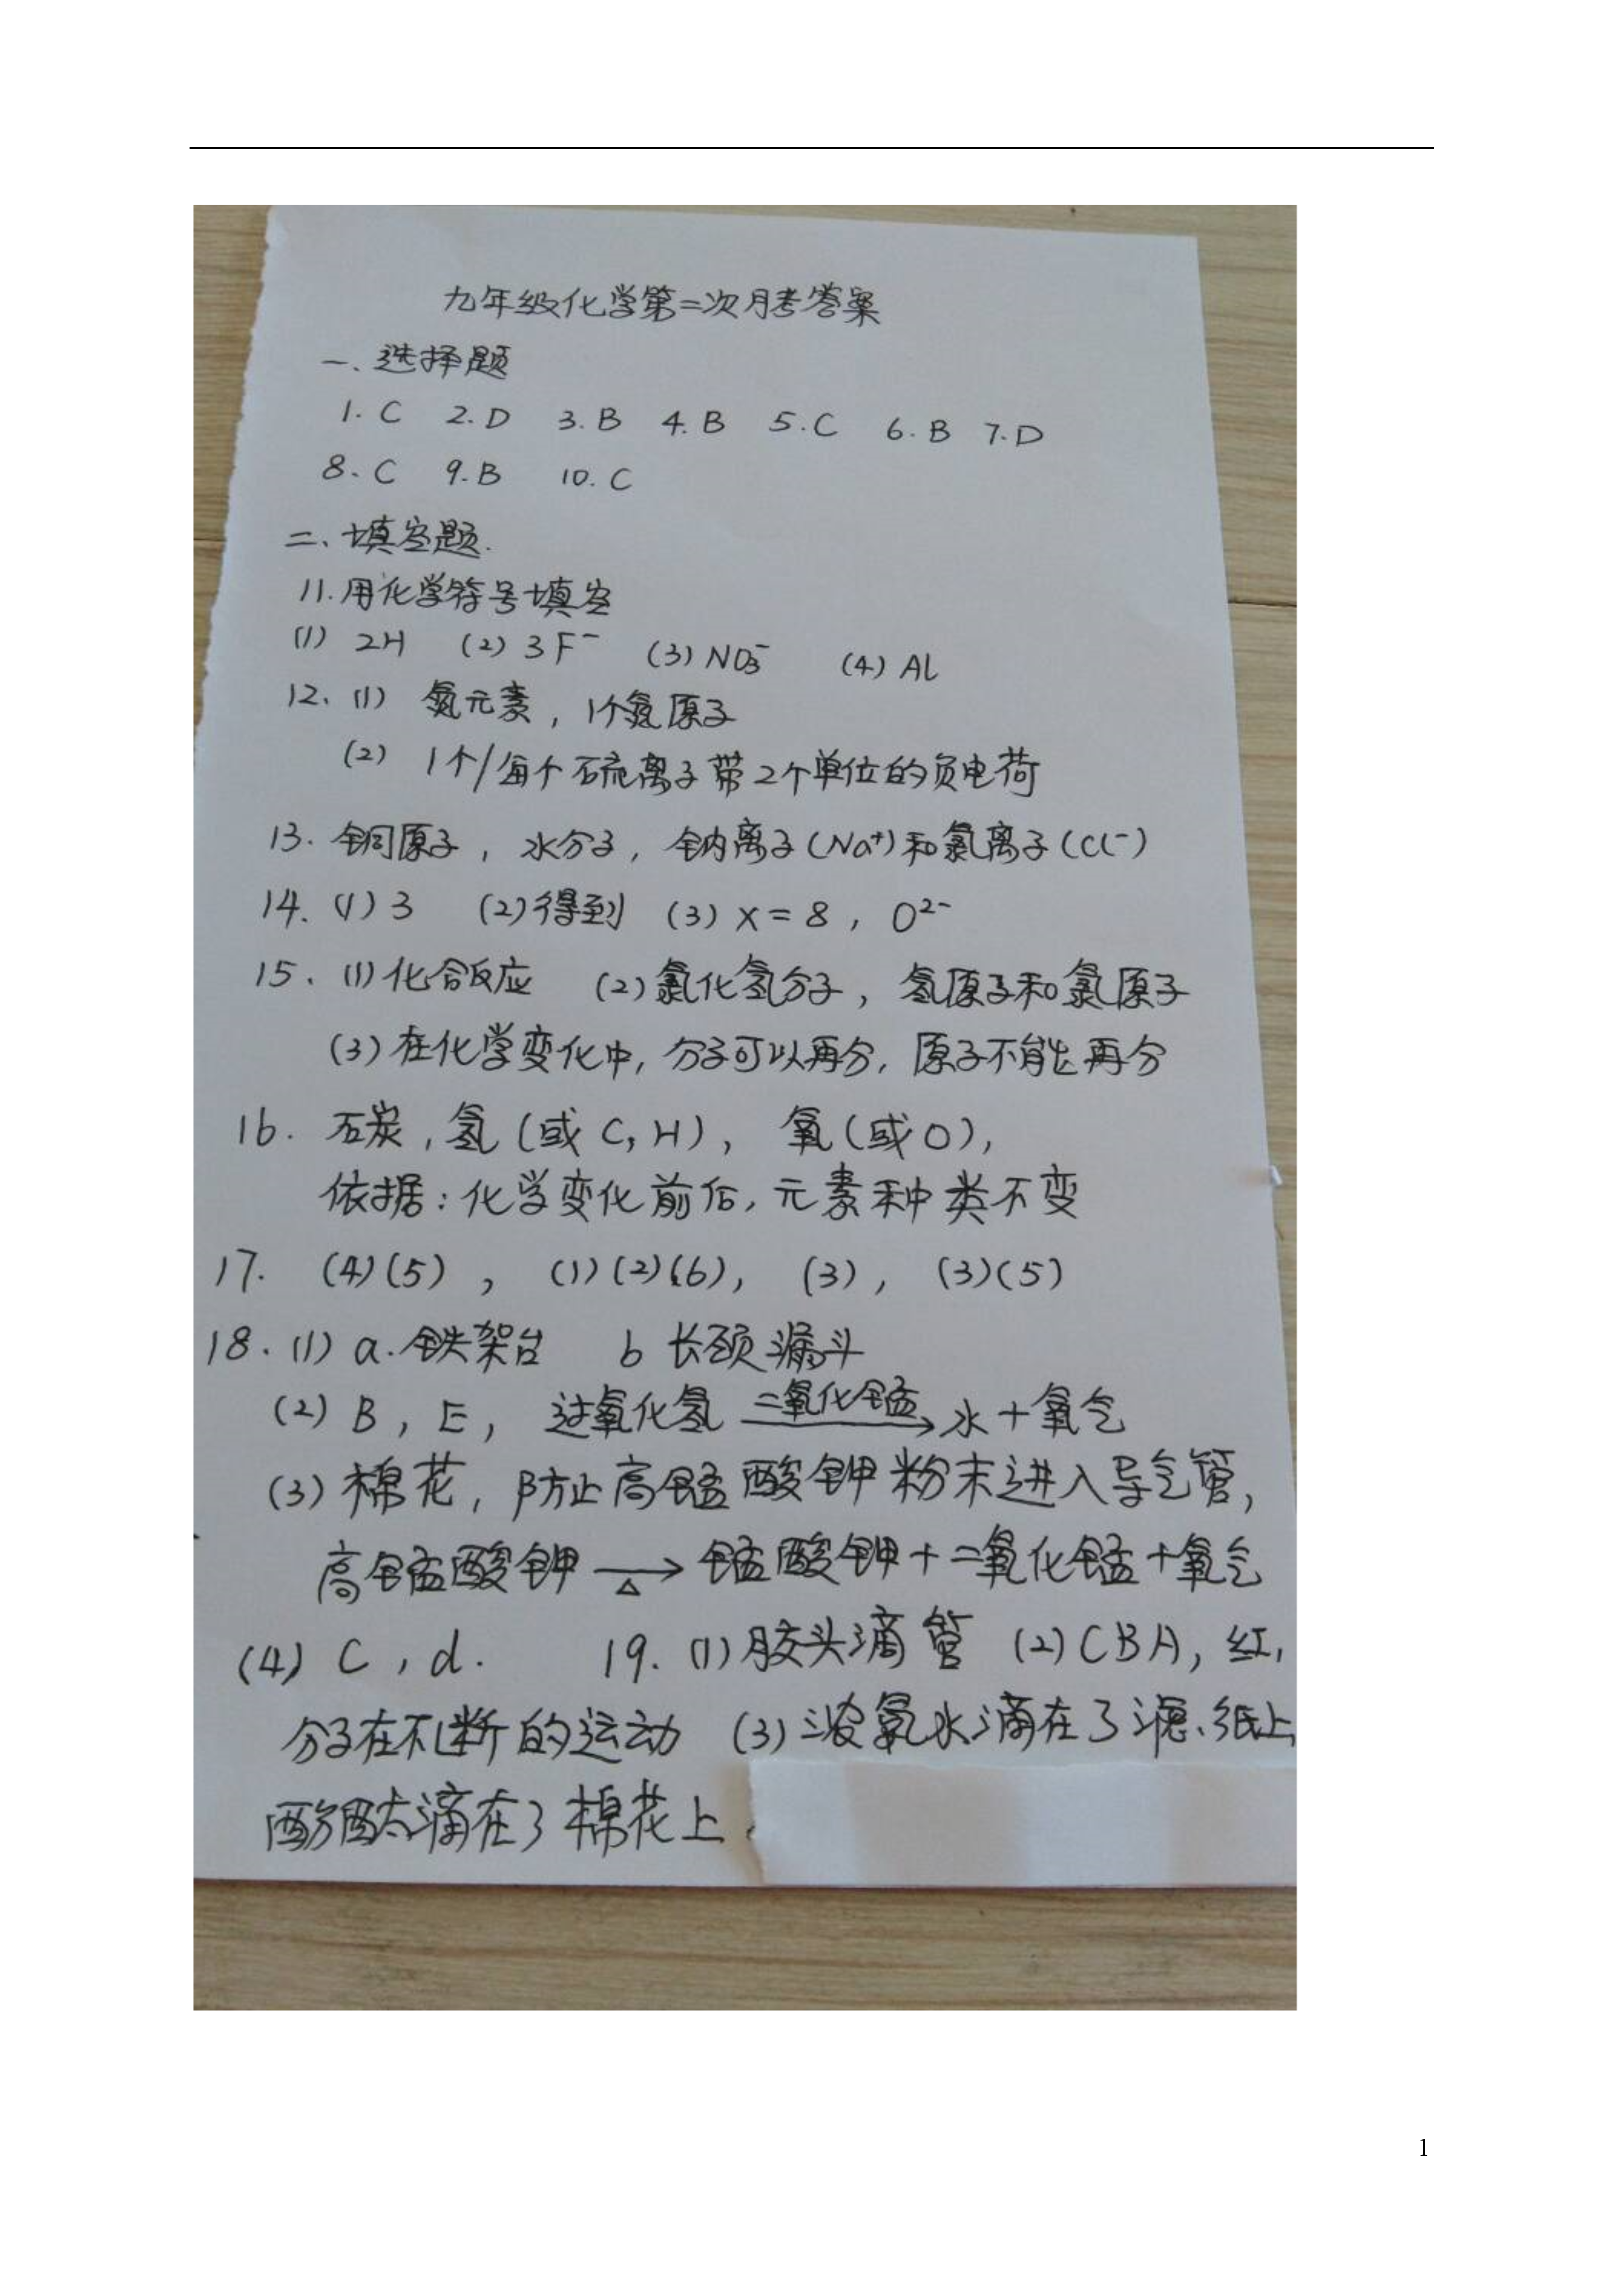 九年级化学第二次月考答案
一、选择题
1. C 2. D 3. B 4. B 5. C 6. B 7. D
8. C 9. B 10. C
二、填空题.
11. 用化学符号填空
(1) 2H (2) 3F⁻ (3) NO₃⁻ (4) Al
12. (1) 氮元素, 1个氮原子
(2) 1个/每个硫离子带2个单位的负电荷
13. 铜原子, 水分子, 钠离子(Na⁺)和氯离子(Cl⁻)
14. (1) 3 (2)得到 (3) X=8, O²⁻
15. (1)化合反应 (2)氯化氢分子, 氢原子和氯原子
(3)在化学变化中, 分子可以再分, 原子不能再分
16. 石炭, 氢(或C, H), 氧(或O),
依据: 化学变化前后, 元素种类不变
17. (4)(5), (1)(2)(6), (3), (3)(5)
18. (1) a. 铁架台 b 长颈漏斗
(2) B, E, 过氧化氢 二氧化锰→ 水+氧气
(3) 棉花, 防止高锰酸钾粉末进入导气管,
高锰酸钾 →△ 锰酸钾+二氧化锰+氧气
(4) C, d. 19. (1)胶头滴管 (2) CBA, 红,
分子在不断的运动 (3)浓氨水滴在了滤纸上
酚酞滴在了棉花上.
1